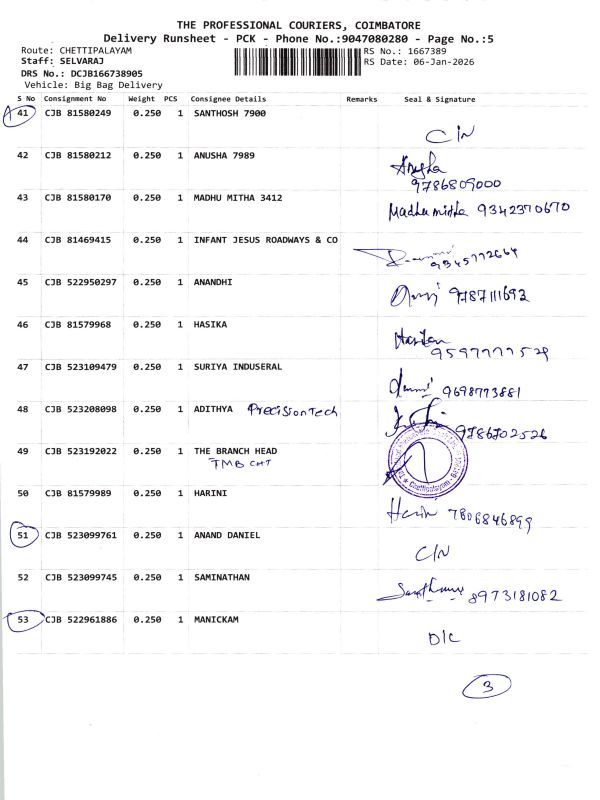 THE PROFESSIONAL COURIERS, COIMBATORE
Delivery Runsheet - PCK - Phone No.:9047080280 - Page No.:5
Route: CHETTIPALAYAM
RS No.: 1667389
Staff: SELVARAJ
RS Date: 06-Jan-2026
DRS No.: DCJB166738905
Vehicle: Big Bag Delivery
S No Consignment No Weight PCS Consignee Details Remarks Seal & Signature
41 CJB 81580249 0.250 1 SANTHOSH 7900
C/N
42 CJB 81580212 0.250 1 ANUSHA 7989 Anusha
9786809000
43 CJB 81580170 0.250 1 MADHU MITHA 3412 Madhu mitha 9342370670
44 CJB 81469415 0.250 1 INFANT JESUS ROADWAYS & CO
9345772664
45 CJB 522950297 0.250 1 ANANDHI 9787111692
46 CJB 81579968 0.250 1 HASIKA
47 CJB 523109479 0.250 1 SURIYA INDUSERAL
9698773881
48 CJB 523208098 0.250 1 ADITHYA PrecisionTech
9786702526
49 CJB 523192022 0.250 1 THE BRANCH HEAD
TMB CHT
50 CJB 81579989 0.250 1 HARINI
7806846899
51 CJB 523099761 0.250 1 ANAND DANIEL
C/N
52 CJB 523099745 0.250 1 SAMINATHAN
8973181082
53 CJB 522961886 0.250 1 MANICKAM
D/C
3